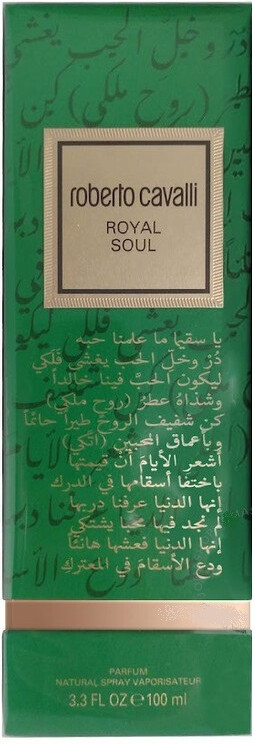 roberto cavalli
ROYAL
SOUL
يا سقيما ما علمنا حبه
دُرْ وخلِّ الحب يغشى فلكي
ليكون الحبّ فينا خالداً
وشذاهُ عطرُ (روح ملكي)
كن شفيف الروح طيراً حائماً
وبأعماق المحبين (اتكي)
أشعر الأيام أن قيمتها
باختفا أسقامها في الدرك
إنها الدنيا عرفنا دربها
لم نجد فيها محبا يشتكي
إنها الدنيا فعشها هانئاً
ودع الأسقام في المعترك
PARFUM
NATURAL SPRAY VAPORISATEUR
3.3 FL OZ e 100 ml